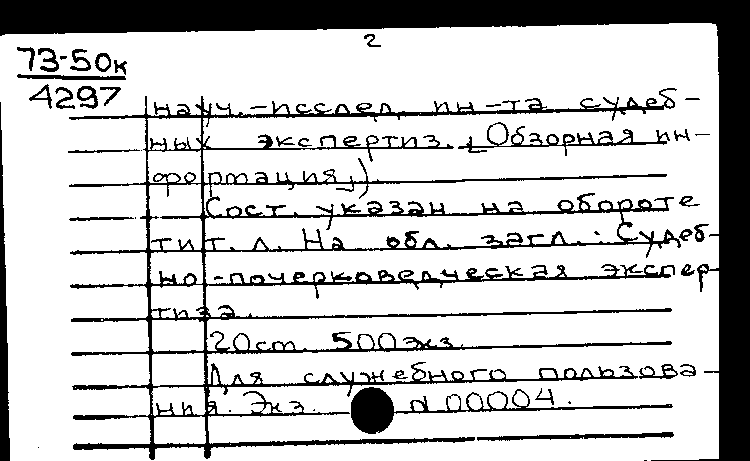 2
73-50к
4297
науч.-исслед. ин-та судеб-
ных экспертиз. [Обзорная ин-
формация]).
Сост. указан на обороте
тит. л. На обл. загл.: Судеб-
но-почерковедческая экспер-
тиза.
20ст. 500экз.
Для служебного пользова-
ния. Экз. N 00004.